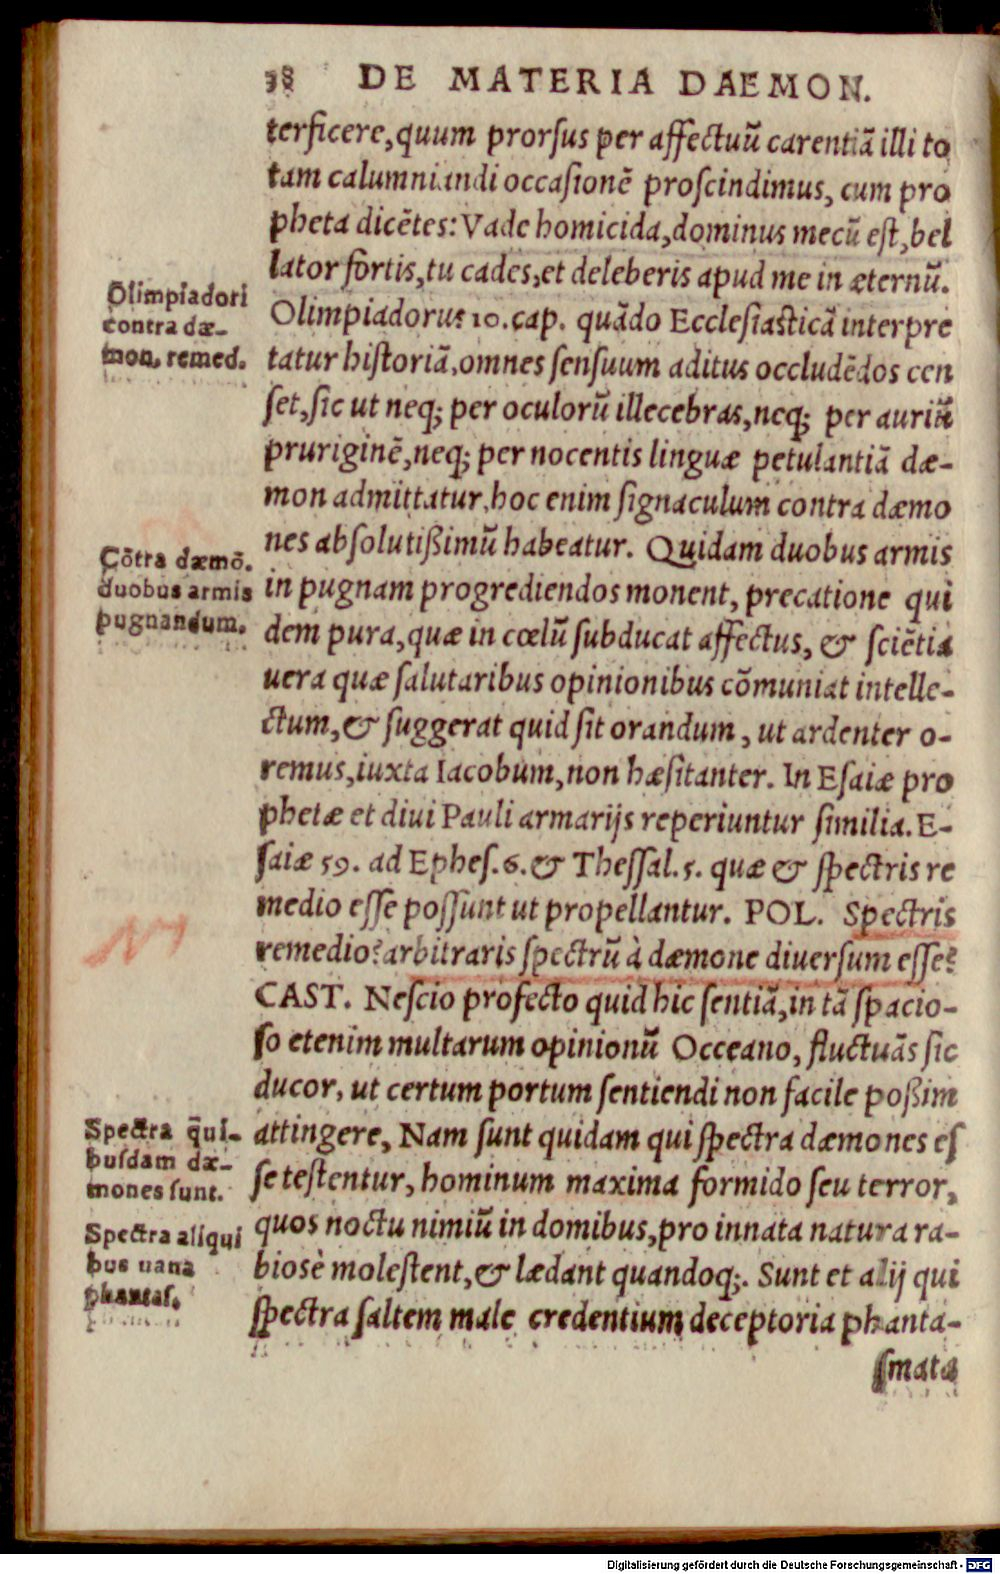 38 DE MATERIA DAEMON.
terficere,quum prorſus per affectuū carentiā illi to
tam calumniandi occaſionē proſcindimus, cum pro
pheta dicētes: Vade homicida,dominus mecū eſt,bel
lator fortis,tu cades,et deleberis apud me in æternū.
Olimpiadorus 10.cap. quādo Eccleſiaſticā interpre
tatur hiſtoriā,omnes ſenſuum aditus occludēdos cen
ſet,ſic ut neq; per oculorū illecebras,neq; per auriū
pruriginē,neq; per nocentis linguæ petulantiā dæ-
mon admittatur,hoc enim ſignaculum contra dæmo
nes abſolutißimū habeatur. Quidam duobus armis
in pugnam progrediendos monent, precatione qui
dem pura,quæ in cœlū ſubducat affectus, & ſciētia
uera quæ ſalutaribus opinionibus cōmuniat intelle-
ctum,& ſuggerat quid ſit orandum, ut ardenter o-
remus,iuxta Iacobum,non hæſitanter. In Eſaiæ pro
phetæ et diui Pauli armarijs reperiuntur ſimilia. E-
ſaiæ 59. ad Epheſ.6.& Theſſal.5. quæ & ſpectris re
medio eſſe poſſunt ut propellantur. POL. Spectris
remedio? arbitraris ſpectrū à dæmone diuerſum eſſe?
CAST. Neſcio profecto quid hic ſentiā,in tā ſpacio-
ſo etenim multarum opinionū Occeano, fluctuās ſic
ducor, ut certum portum ſentiendi non facile poßim
attingere, Nam ſunt quidam qui ſpectra dæmones eſ
ſe teſtentur, hominum maxima formido ſeu terror,
quos noctu nimiū in domibus,pro innata natura ra-
bioſè moleſtent,& lædant quandoq;. Sunt et alij qui
ſpectra ſaltem male credentium deceptoria phanta-
ſmata
Olimpiadori
contra dæ-
mon. remed.
Cōtra dæmō.
duobus armis
pugnandum.
Spectra q̄ui-
buſdam dæ-
mones ſunt.
Spectra aliqui
bus uana
phantaſ.
Digitalisierung gefördert durch die Deutsche Forschungsgemeinschaft - DFG